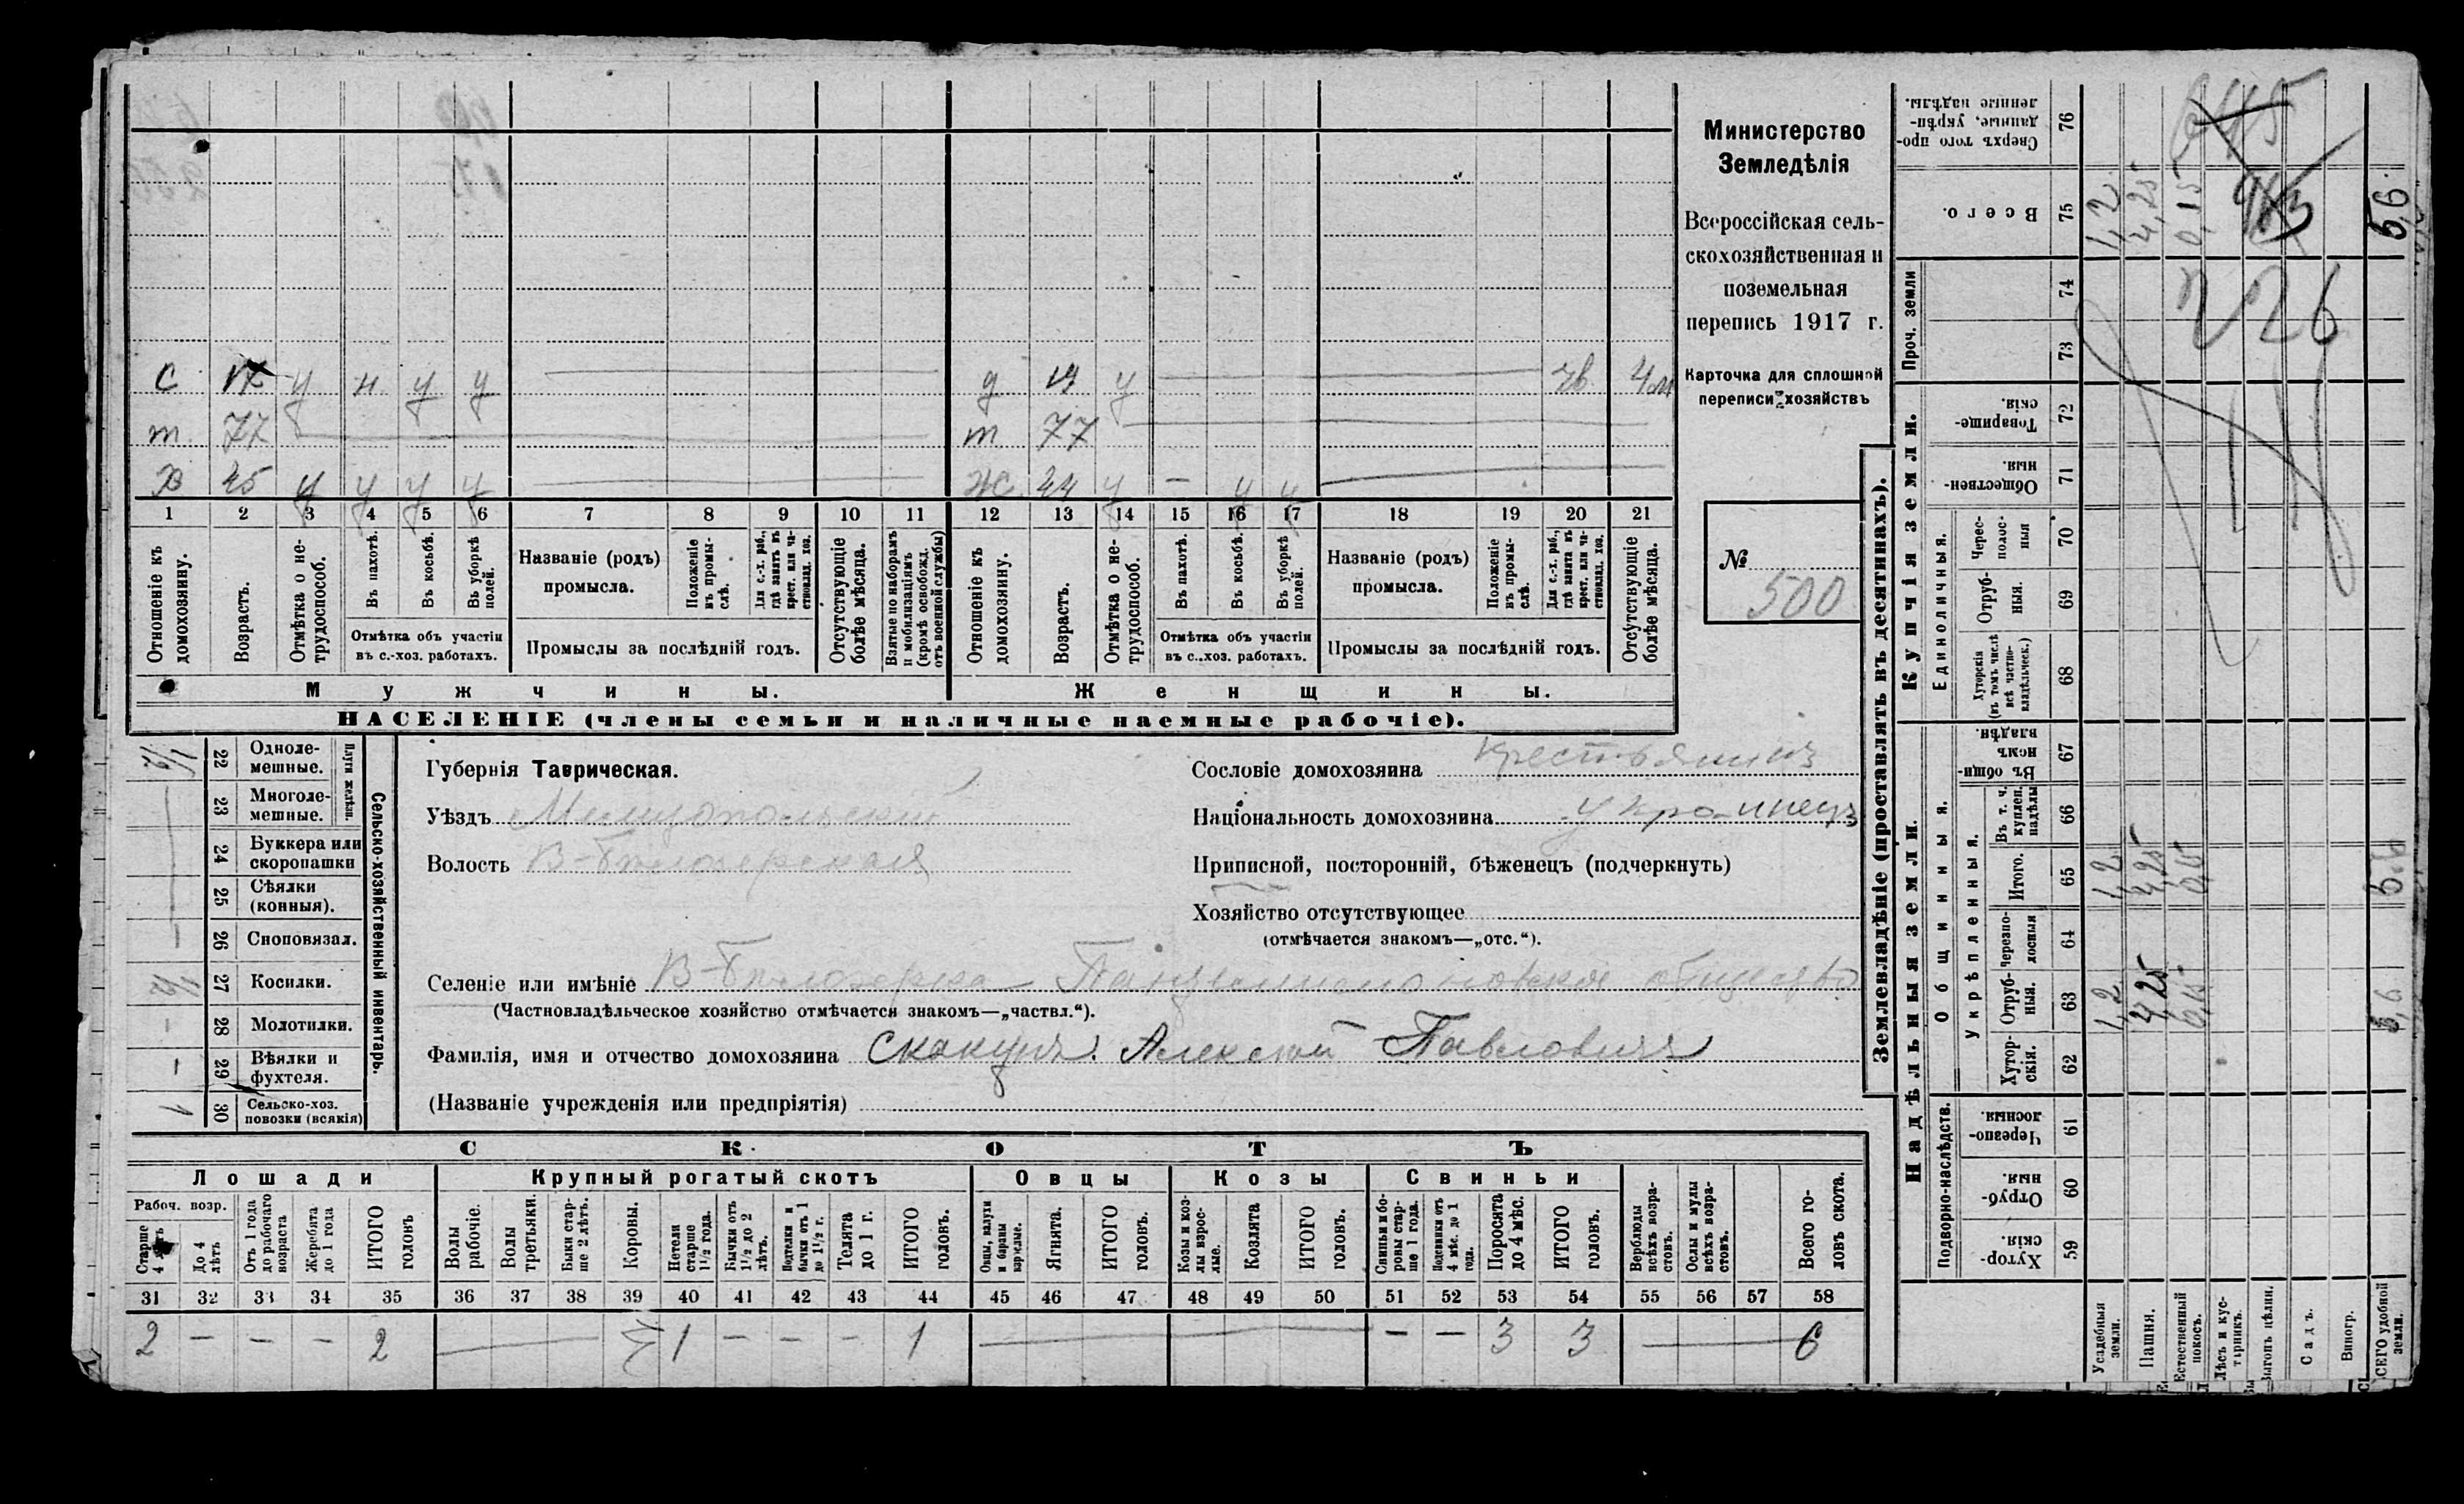 Министерство
Земледѣлія
Всероссійская сель-
скохозяйственная и
поземельная
перепись 1917 г.
Карточка для сплошной
переписи хозяйствъ
№
500
С 17 у н у у д 19 у 4м
т 77 т 77
Х 25 у у у у Ж 24 у — у у
1 2 3 4 5 6 7 8 9 10 11 12 13 14 15 16 17 18 19 20 21
Отношеніе къ домохозяину.
Возрастъ.
Отмѣтка о не-трудоспособ.
Въ пахотѣ.
Въ косьбѣ.
Въ уборкѣ полей.
Отмѣтка объ участіи
въ с.-хоз. работахъ.
Названіе (родъ)
промысла.
Положеніе въ промы-слѣ.
Для с.-х. раб., гдѣ занятъ въ крест. или ча-стновлад. хоз.
Промыслы за послѣдній годъ.
Отсутствующіе болѣе мѣсяца.
Взятые по наборамъ и мобилизаціямъ (кромѣ освобожд. отъ военной службы)
Отношеніе къ домохозяину.
Возрастъ.
Отмѣтка о не-трудоспособ.
Въ пахотѣ.
Въ косьбѣ.
Въ уборкѣ полей.
Отмѣтка объ участіи
въ с.-хоз. работахъ.
Названіе (родъ)
промысла.
Положеніе въ промы-слѣ.
Для с.-х. раб., гдѣ занятъ въ крест. или ча-стновлад. хоз.
Промыслы за послѣдній годъ.
Отсутствующіе болѣе мѣсяца.
Мужчины.
Женщины.
НАСЕЛЕНІЕ (члены семьи и наличные наемные рабочіе).
Сельско-хозяйственный инвентарь.
Плуги желѣзн.
22 Одноле-мешные.
23 Многоле-мешные.
24 Буккера или скоропашки
25 Сѣялки (конныя).
26 Сноповязал.
27 Косилки.
28 Молотилки.
29 Вѣялки и фухтеля.
1 30 Сельско-хоз. повозки (всякія)
Губернія Таврическая.
Уѣздъ Мелитопольскій
Волость В-Бѣлозерская
Сословіе домохозяина крестьянинъ
Національность домохозяина украинецъ
Приписной, посторонній, бѣженецъ (подчеркнуть)
Хозяйство отсутствующее
(отмѣчается знакомъ—„отс.“).
Селеніе или имѣніе В-Бѣлозерка общество
(Частновладѣльческое хозяйство отмѣчается знакомъ—„частвл.“).
Фамилія, имя и отчество домохозяина Скакунъ Алексѣй Павловичъ
(Названіе учрежденія или предпріятія)
СКОТЪ
Лошади Крупный рогатый скотъ Овцы Козы Свиньи
Рабоч. возр.
Старше 4 лѣтъ
До 4 лѣтъ
Отъ 1 года до рабочаго возраста
Жеребята до 1 года
ИТОГО головъ
Волы рабочіе.
Волы третьяки.
Быки стар-ше 2 лѣтъ.
Коровы.
Нетели старше 1½ года.
Бычки отъ 1½ до 2 лѣтъ.
Подтелки и бычки отъ 1 до 1½ г.
Телята до 1 г.
ИТОГО головъ.
Овцы, валухи и бараны взрослые.
Ягнята.
ИТОГО головъ.
Козы и коз-лы взрос-лые.
Козлята
ИТОГО головъ.
Свиньи и бо-ровы стар-ше 1 года.
Подсвинки отъ 4 мѣс. до 1 года.
Поросята до 4 мѣс.
ИТОГО головъ.
Верблюды всѣхъ возра-стовъ.
Ослы и мулы всѣхъ возра-стовъ.
Всего го-ловъ скота.
31 32 33 34 35 36 37 38 39 40 41 42 43 44 45 46 47 48 49 50 51 52 53 54 55 56 57 58
2 — — — 2 1 — — — 1 — — 3 3 6
Землевладѣніе (проставлять въ десятинахъ).
Надѣльныя земли.
Купчія земли.
Проч. земли
Подворно-наслѣдств.
Общинныя.
Укрѣпленныя.
Единоличныя.
Хутор-скія 59
Отруб-ныя. 60
Черезпо-лосныя. 61
Хутор-скія. 62
Отруб-ныя. 63
Черезпо-лосныя 64
Итого. 65
Въ т. ч. куплен. надѣлы 66
Въ общи-нномъ владѣн. 67
Хуторскія (въ томъ числѣ всѣ частно-владѣльческ.) 68
Отруб-ныя. 69
Черес-полос-ныя 70
Обществен-ныя. 71
Товарище-скія. 72
73
74
Всего. 75
Сверхъ того про-данные, укрѣп-ленные надѣлы. 76
Усадебныя земли. 1,2 1,2 1,2
Пашня. 4,25 4,25 4,25
Естественный покосъ. 0,15 0,15 0,15
Лѣсъ и кус-тарникъ.
Выгонъ цѣлин.
Садъ.
Виногр.
ВСЕГО удобной земли. 5,6 5,6 5,6
226